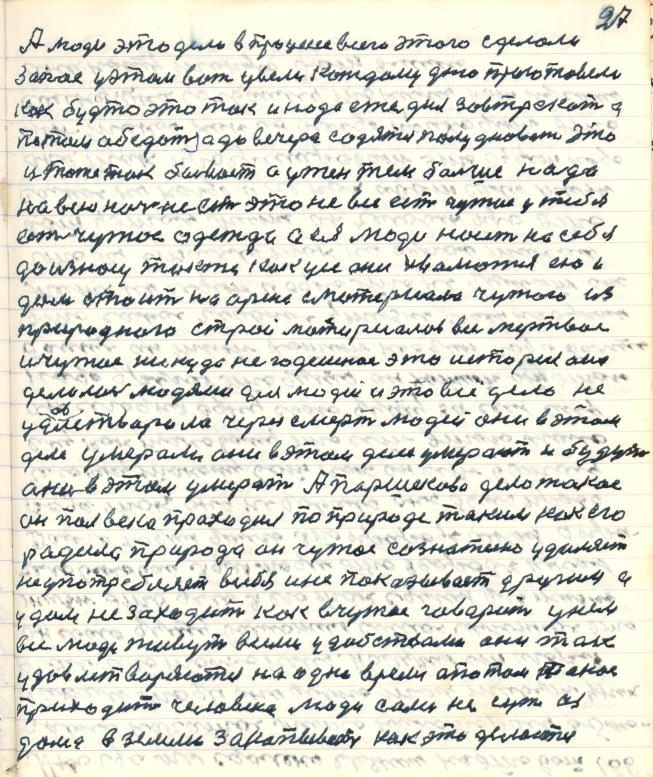 27
А люди это дело в процессе всего этого сделали
за
в этом вот увели каждому дню приготовели
как будто это так и надо ежедня завтракать а
потом обедать а до вечера садятся полудновать это
и тоже так бывает а ужен тем больше надо
на всю ноч не ест это не все ест чужое у тибя
ест чужое одежда а ея люди носит на себя
до износу также как уже они
дом стоит на
с материала чужого из
природного строй матириалов все мертвое
и чужое никуда не годешное это история она
делалас людями для людей и это все дело не
удовлетварола через смерт людей они в этом
деле умерали они в этом деле умерают и будут
они в этом умерат А Паршекова дело такое
он пол века праходил по природе таким как его
радила природа он чужое сознателно удаляет
не употребляет в себя и не показывает другим а
у дом не заходит как в чужое говарит у нем
все люди живут всеми удобствами они так
удовлетваряются на одно время а потом такое
приходит человека люди сами несут из
дома в землю закапывают как это делается